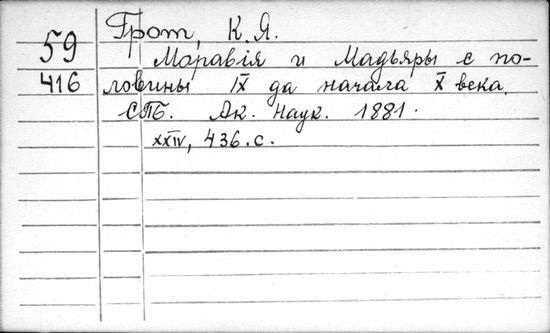 59
416
Грот, К. Я.
Моравія и Мадьяры с по-
ловины IX да начала X века.
СПБ. Ак. Наук. 1881.
XXIV, 436. с.